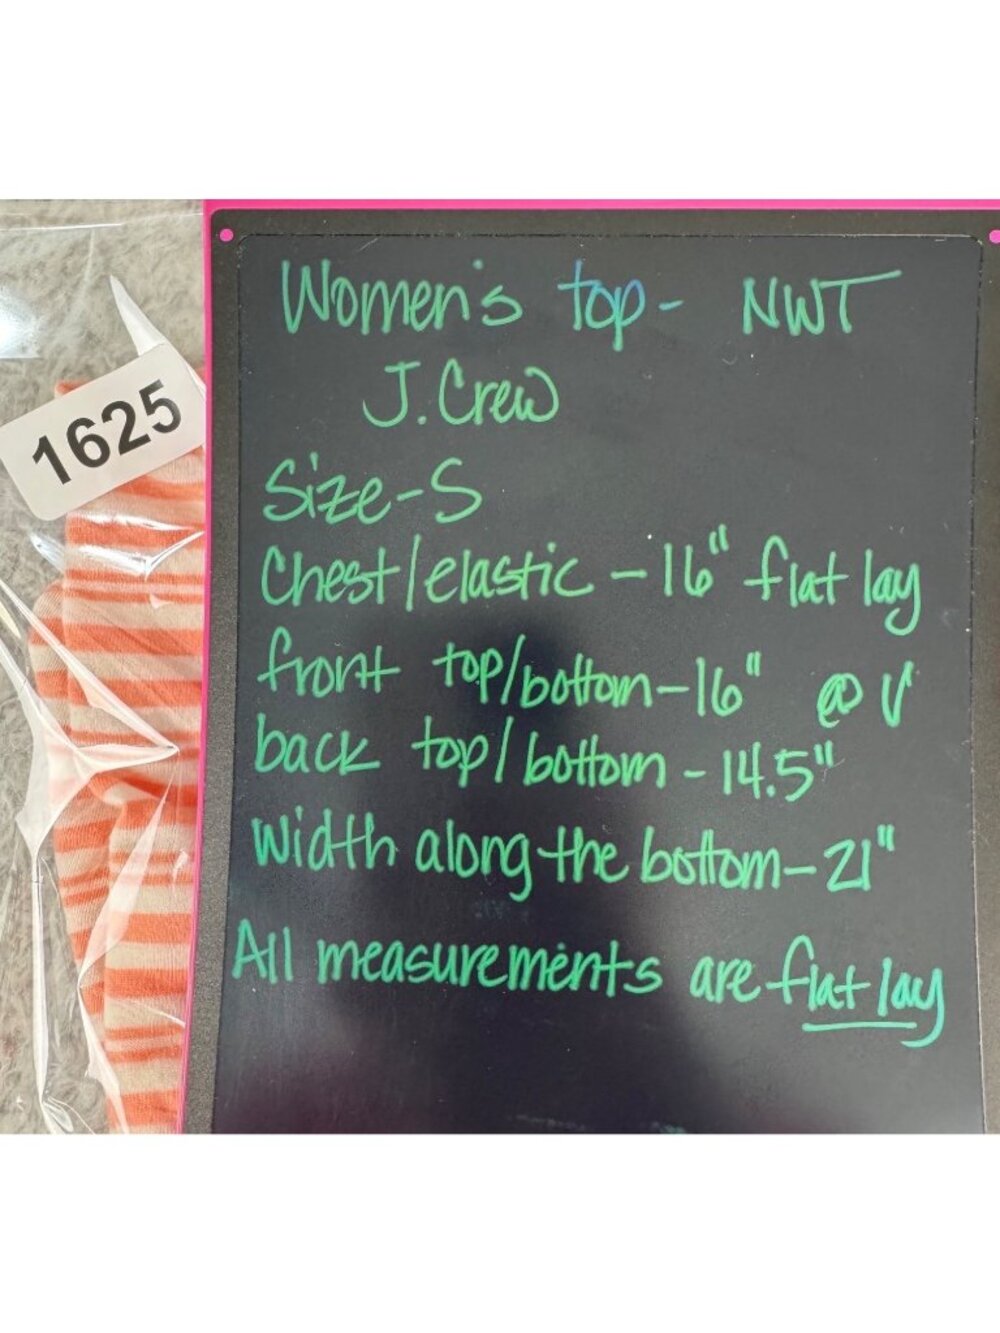 1625
Women's top - NWT
J.Crew
Size-S
Chest/elastic - 16" flat lay
front top/bottom - 16" @ V
back top/bottom - 14.5"
Width along the bottom - 21"
All measurements are flat lay